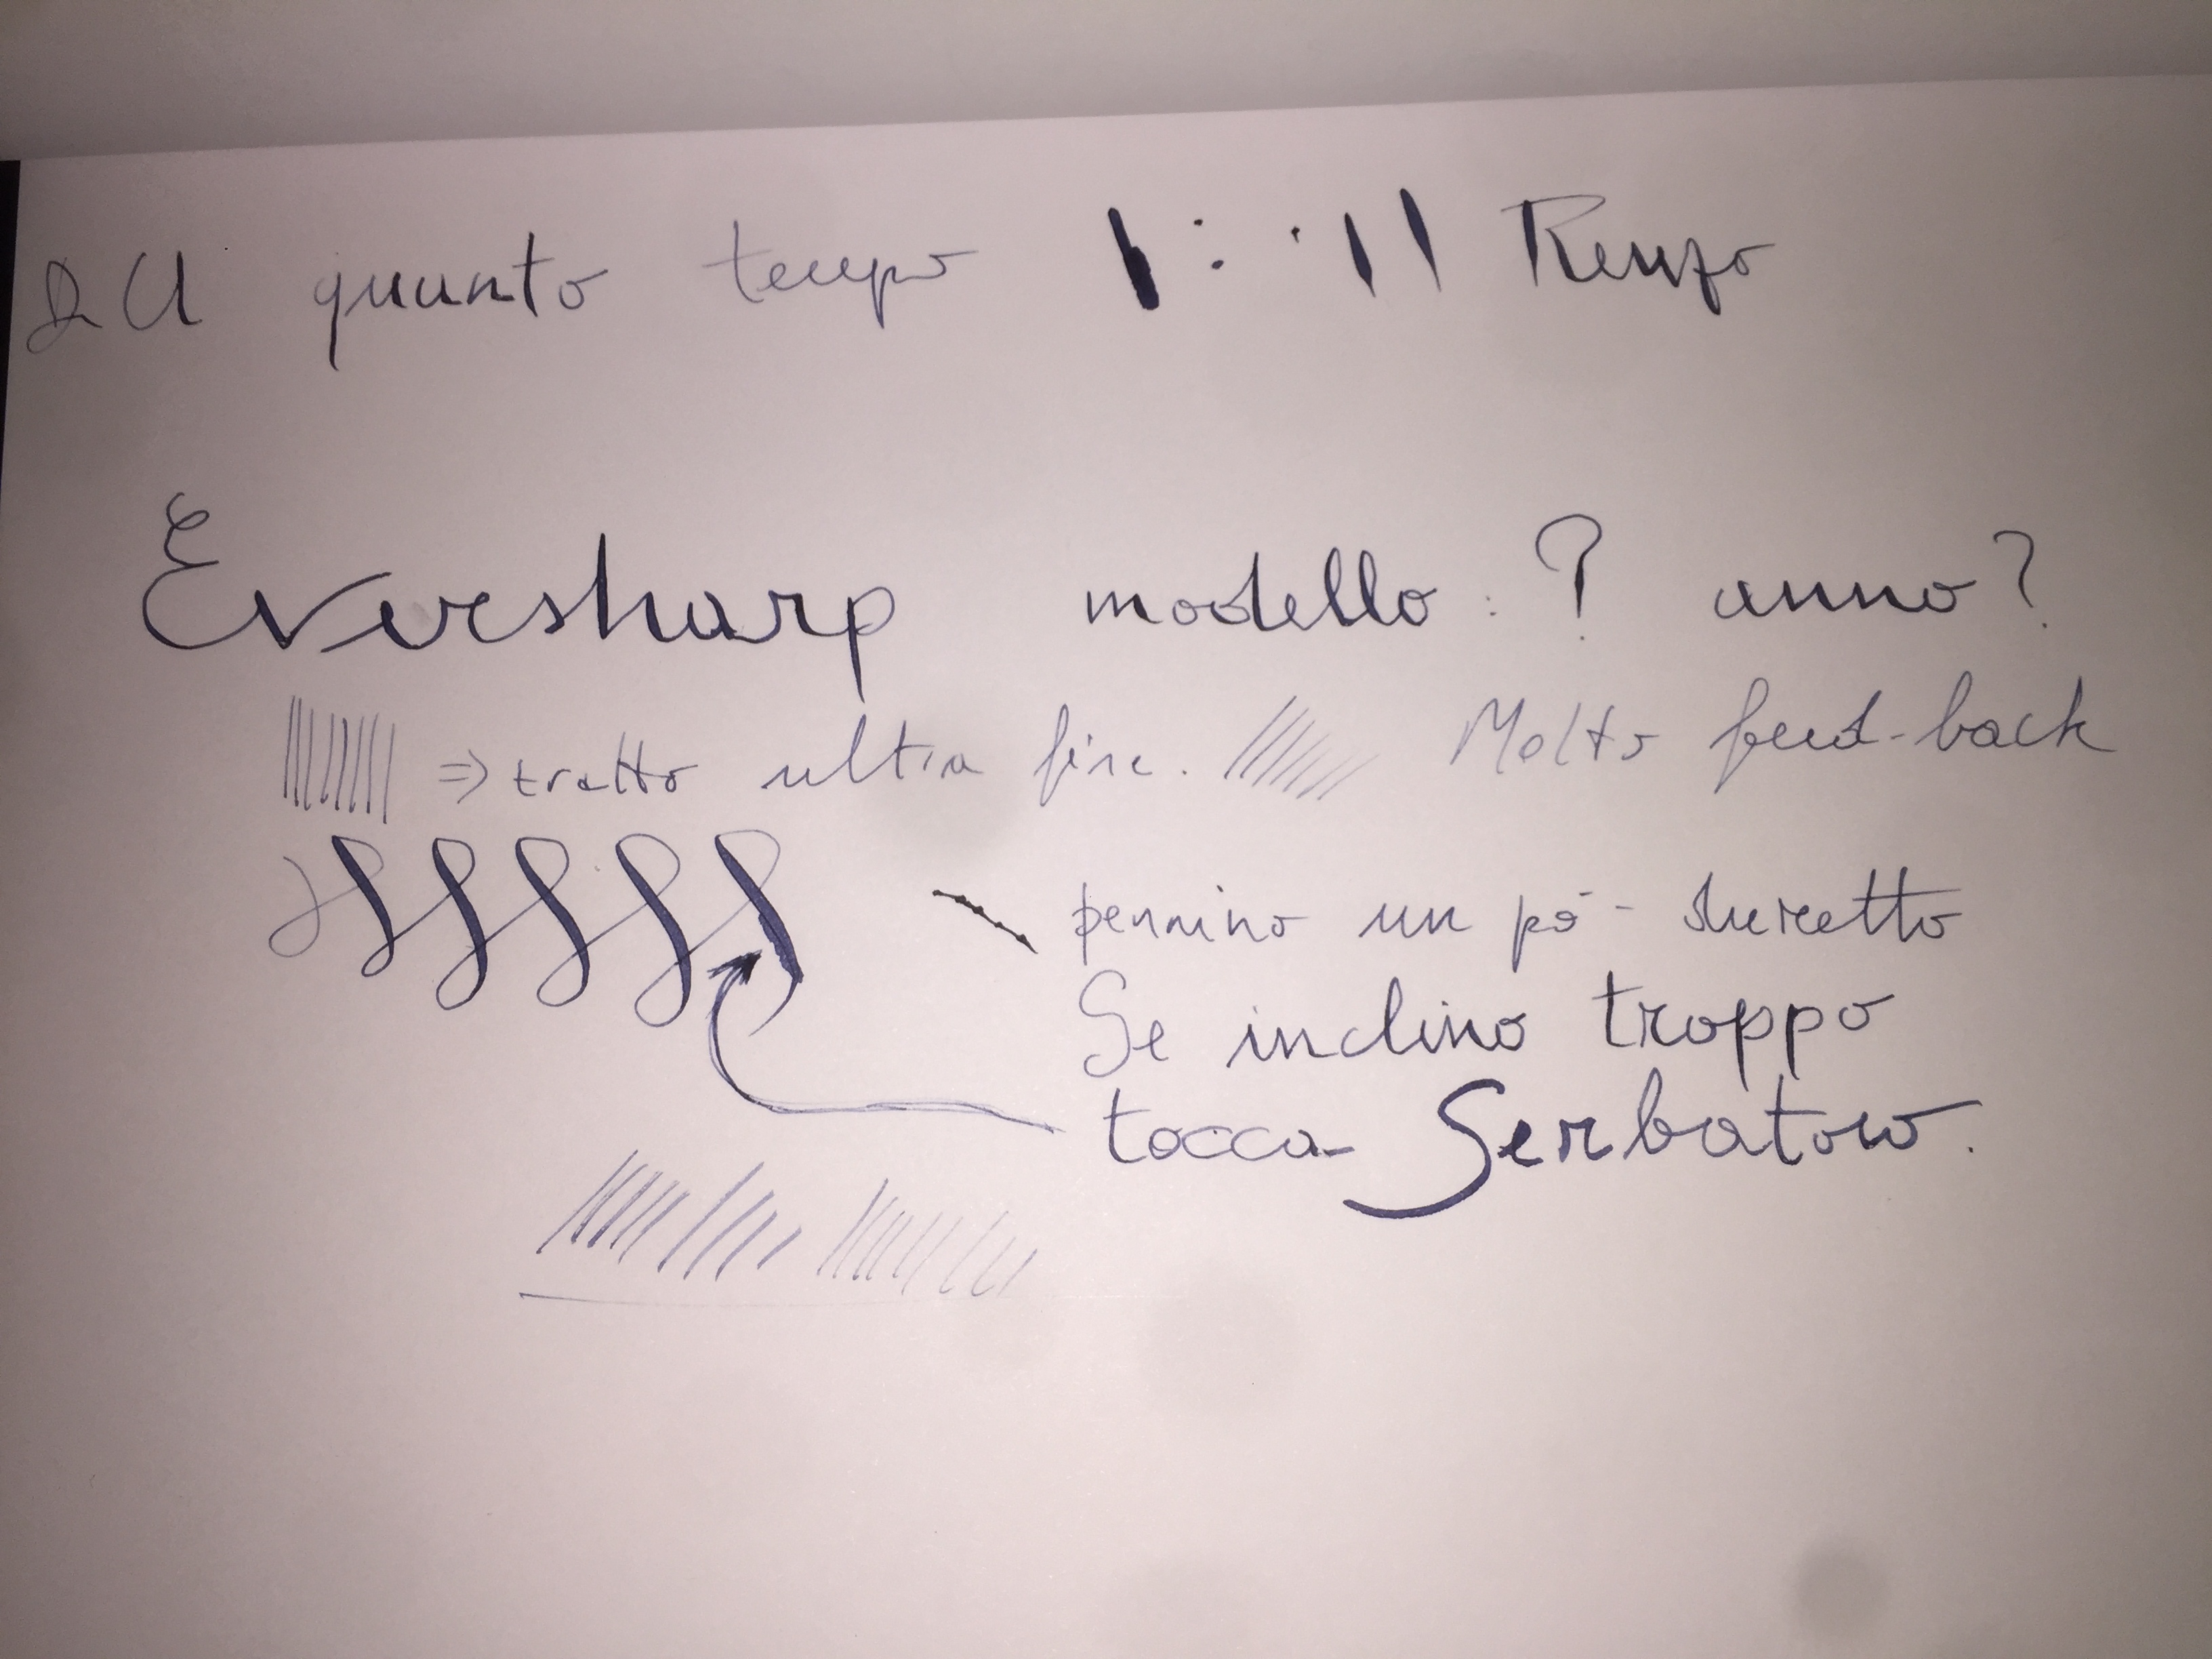 quanto tempo Renzo
Eversharp modello : ? anno?
⇒ tratto ultra fine. Molto feed-back
pennino un pò
Se inclino troppo
tocca Serbatoio.